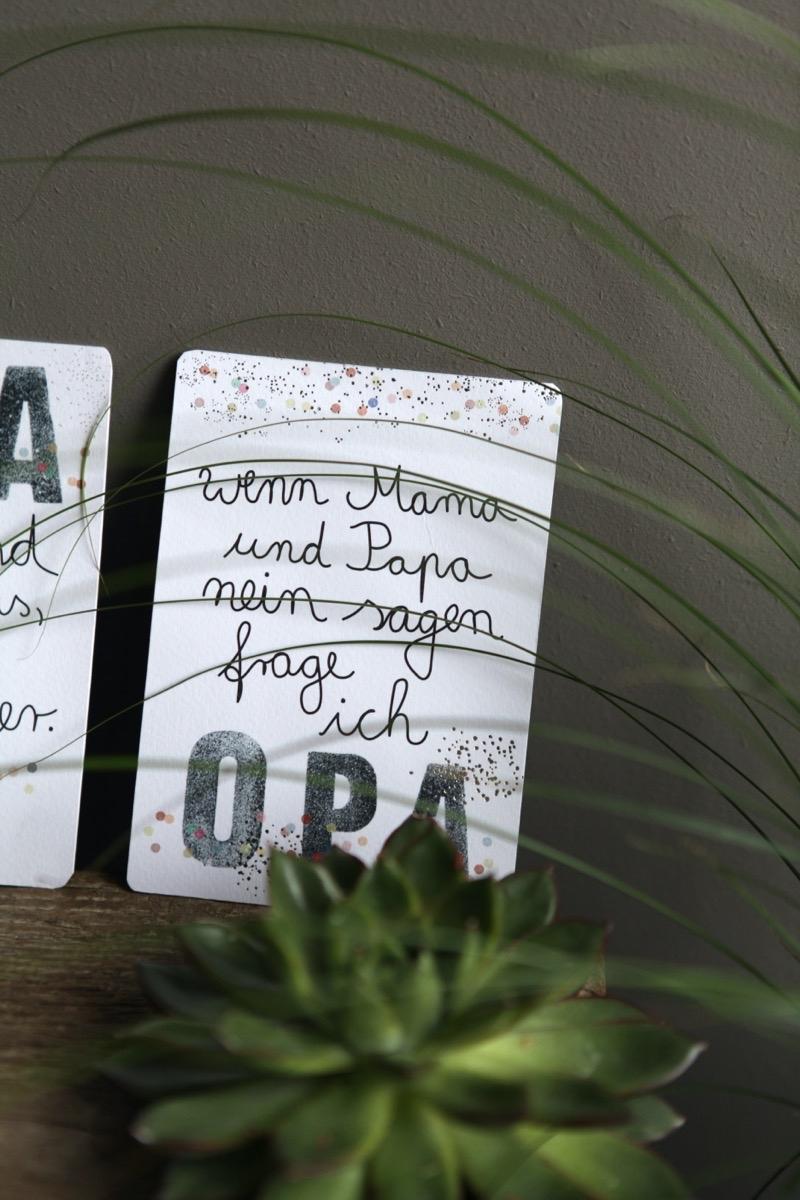 A
wenn Mama
und Papa
nein sagen
frage
ich
OPA